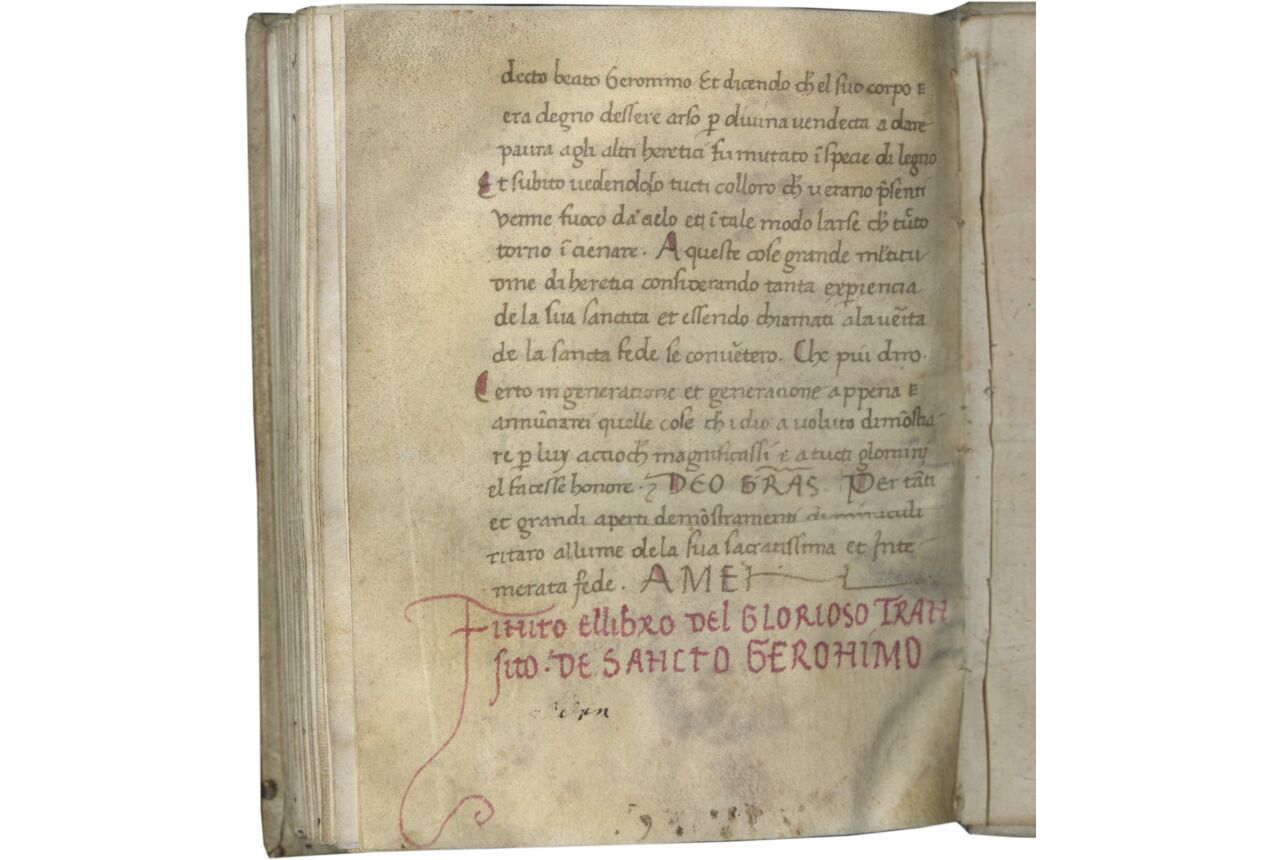 decto beato Geronimo Et dicendo ch̄ el suo corpo
era degno dessere arso ꝑ diuina uendecta a dare
paura agli altri heretici fu mutato ī specie di legno
Et subito uedendolo tucti colloro ch̄ u erano p̄senti
venne fuoco da cielo et ī tale modo larse ch̄ tucto
torno ī cienare. A queste cose grande ml̄titu
dine di heretici considerando tanta exꝑiencia
de la sua sanctita et essendo chiamati a la ue͂ita
de la sancta fede se conūetero. Che piu diro.
Certo in generatione et generacione appena
annūciarei quelle cose ch̄ idio a uoluto dimōstra
re ꝑ luy accioch̄ magnificassi e a tucti glomini
el facesse honore. DEO GRAS. Per tāti
et grandi aperti demōstramenti di miraculi
ritraro allume dela sua sacratissima et Inte
merata fede. AMEN
Finito ellibro del GLORIOSO TRAN
sito. DE SANCTO GERONIMO